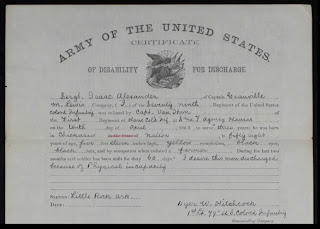 ARMY OF THE UNITED STATES.
CERTIFICATE
OF DISABILITY FOR DISCHARGE.
Sergt. Isaac Alexander of Captain Granville
M. Lewis Company, ( I ) of the Seventy ninth Regiment of the United States
Colored Infantry was enlisted by Capt. Van Horn of
the First Regiment of Kans Col'd Inf at
on the tenth day of April to serve three years; he was born
in Chickasaw in the State of Nation is fifty eight
years of age, five feet eleven inches high, yellow complexion, black eyes,
black hair, and by occupation when enlisted a farmer During the last two
months said soldier has been unfit for duty 60 days. I desire this man discharged
because of Physical incapacity
STATION: Little Rock Ark.
DATE:
Dyer W. Hitchcock
1st Lt. 79" U.S. Colored Infantry
Commanding Company.